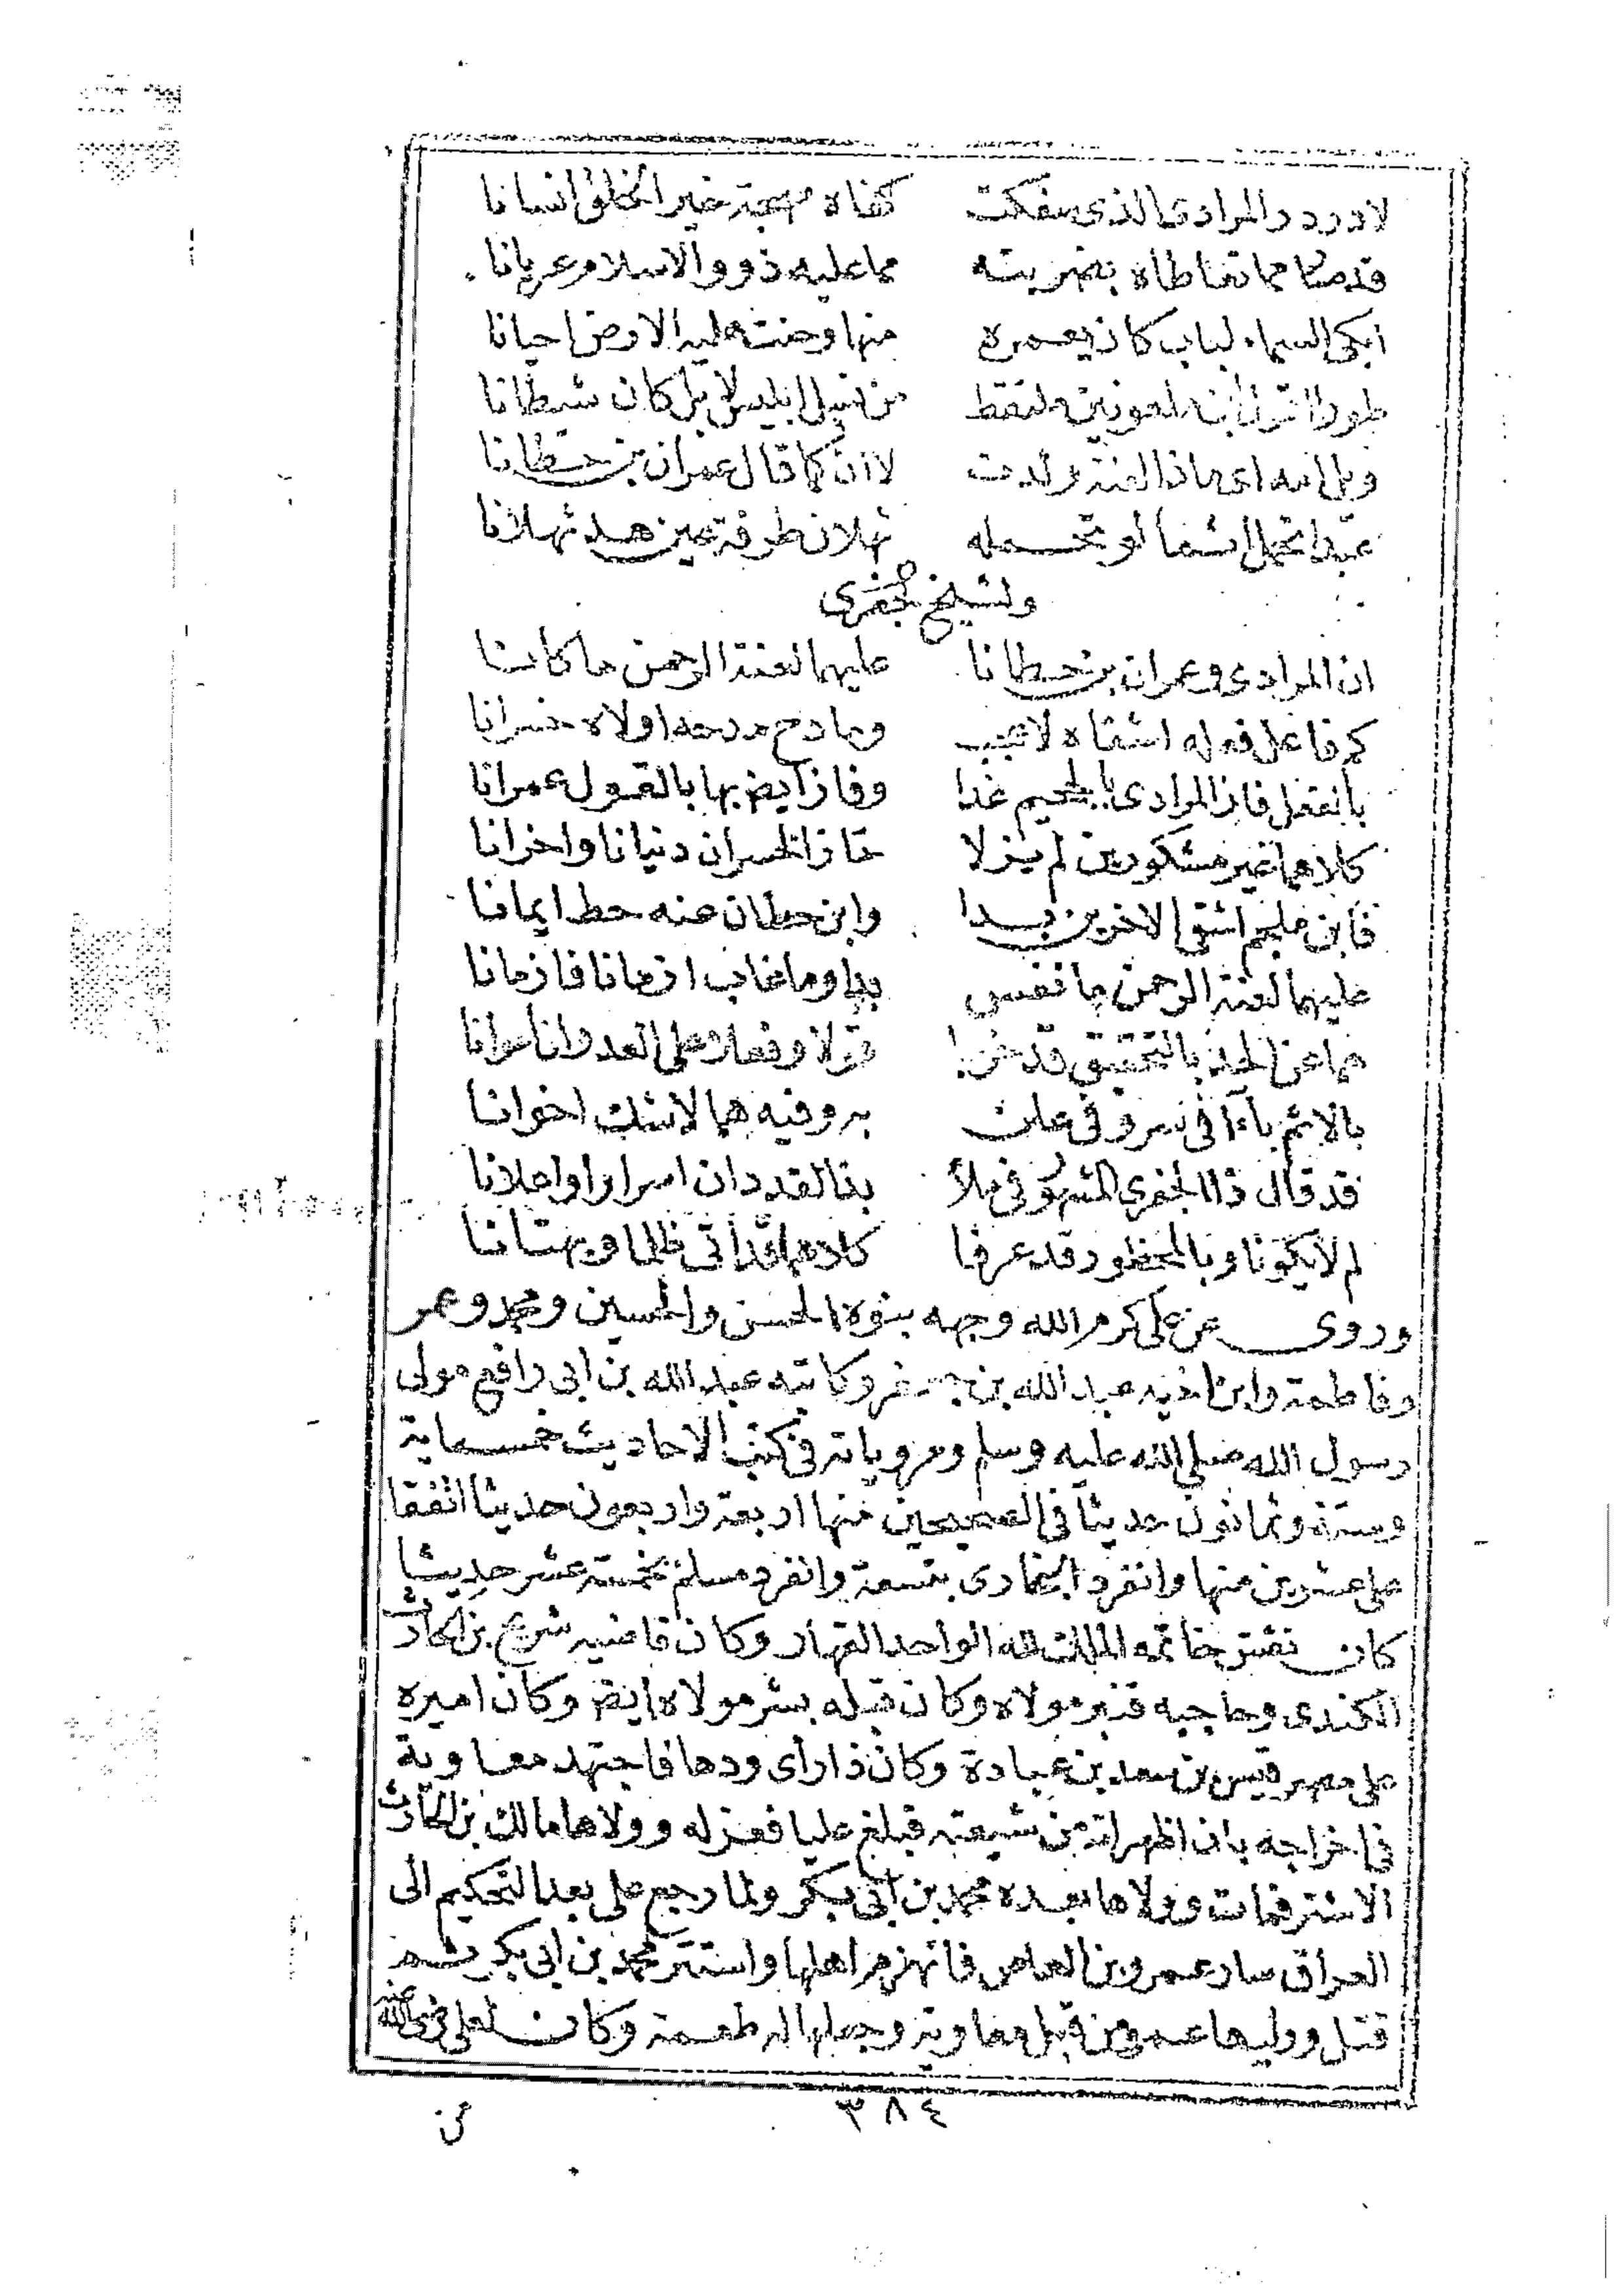 لا در در المرادى الذى سفكت كفاه مهجة خير الخلق انسانا
مما تعاطاه بضربته مما عليه ذووا الاسلام عريانا
ابكى السماء لباب كان يعمره منها وحنت عليه الارض احيانا
ملعونين من نسل ابليس لا بل كان شيطانا
ويل امه اى ماذا لعنة ولدت لا ان كما قال عمران بن حطانا
عبدا تحمل اثما لو تحمله ثهلان طرفة عين هد ثهلانا
ولشيخ الجفرى
ان المرادى وعمران بن حطانا عليهما لعنة الرحمن ما كانا
كم فاعل فعله اشقاه لا عجب ومادح مدحه اولاه خسرانا
بالفعل فاز المرادى بالجحيم غدا وفاز ايض بها بالقول عمرانا
كلاهما غير مشكورين لم يزلا حازا الخسران دنيانا واخرانا
فابن ملجم اشقى الاخرين بدا وابن حطان عنه حط ايمانا
عليهما لعنة الرحمن ما نفس بدا وما غاب ازمانا فازمانا
هما عن الحق بالتحقيق قد قولا وفعلا وعلى العدوان اعوانا
بالاثم باءا فى سر وفى علن به وفيه هما لا شك اخوانا
قد قال ذا الجفرى المشهو فى ملأ بذا لقد دان اسرارا واعلانا
لم لا يكونا وبالمحظور قد عرفا كلاهما قد أتى ظلما وبهتانا
وروى عن على كرم الله وجهه بنوه الحسن والحسين ومحمد وعمر
وفاطمة وابن اخيه عبد الله بن جعفر وكاتبه عبد الله بن ابى رافع مولى
رسول الله صلى الله عليه وسلم ومروياته فى كتب الاحاديث خمسماية
وستة وثمانون حديثا فى الصحيحين منها اربعة واربعون حديثا اتفقا
على عشرين منها وانفرد البخارى بتسعة وانفرد مسلم بخمسة عشر حديثا
كان نقش خاتمه الملك لله الواحد القهار وكان قاضيه شريح بن الحارث
الكندى وحاجبه قنبر مولاه وكان قبله بشر مولاه ايض وكان اميره
على مصر قيس بن سعد بن عبادة وكان ذا رأى ودها فاجتهد معاوية
فى اخراجه بان اظهر انه من شيعته فبلغ عليا فعزله وولاها مالك بن الحارث
الاشتر فمات وولاها بعده محمد بن ابى بكر ولما رجع على بعد التحكيم الى
العراق سار عمرو بن العاص فانهزم اهلها واستتر محمد بن ابى بكر ثم
قتل ووليها عمرو من قبل معاوية وجعلها له طعمة وكان لعلى رضى الله عنه
٣٨٤